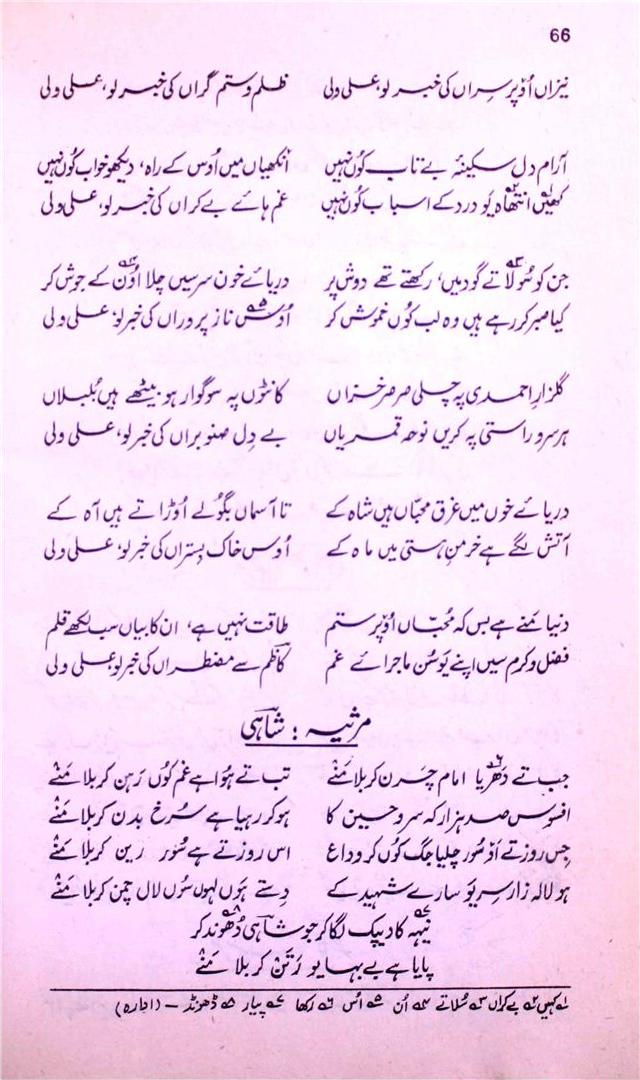 66
نیزاں اُوپر سراں کی خبر لو، علی ولی ظلم و ستم گراں کی خبر لو، علی ولی
آرام دل سکینۂ بے تاب کوں نہیں انکھیاں میں اُوس کے راہ، دیکھو خواب کوں نہیں
کھیں انتھاہ یو درد کے اسباب کوں نہیں غم ہائے بے کراں کی خبر لو، علی ولی
جن کو سُولاتے گود میں، رکھتے تھے دوش پر دریائے خون سر سیں چلا اوُن کے جوش کر
کیا صبر کر رہے ہیں وہ لب کوُں خموش کر اُوس ناز پروراں کی خبر لو، علی ولی
گلزارِ احمدی پہ چلی صرصر خزاں کانٹوں پہ سوگوار ہو بیٹھے ہیں بُلبلاں
ہر سرو راستی پہ کریں نوحہ قمریاں بے دِل صنوبراں کی خبر لو، علی ولی
دریائے خوں میں غرق محبّاں ہیں شاہ کے تا آسماں بگولے اُوڑاتے ہیں آہ کے
آتش لگے ہے خرمنِ ہستی میں ماہ کے اُوس خاک بِستراں کی خبر لو، علی ولی
دنیا منے ہے بس کہ محُبّاں اُوپر ستم طاقت نہیں ہے، ان کا بیاں سب لکھے قلم
فضل و کرم سیں اپنے یو سُن ماجرائے غم کاظم سے مضطراں کی خبر لو، علی ولی
مرثیہ : شاہی
جب تے دَھریا امام چرن کربلا منے تب تے ہُوا ہے غم کوُں رَہن کربلا منے
افسوس صد ہزار کہ سرو حسین کا ہو کر رہیا ہے سُرخ بدن کربلا منے
جس روز تے او سُور چلیا جگ کوُں کر وداع اس روز تے ہے سُور رین کربلا منے
ہو لالہ زار سر یو سارے شہید کے دِستے ہوں لہوں سُوں لال چمن کربلا منے
نیہہ کا دیپک لگا کر جو شاہی دُھوند کر
پایا ہے بے بہا یو رَتَن کربلا منے
۱؎ کہیں ۲؎ بے کراں ۳؎ سُلاتے ۴؎ اُن ۵؎ اُس ۶؎ رکھا ۷؎ پیار ۸؎ ڈھونڈ — (ادارہ)